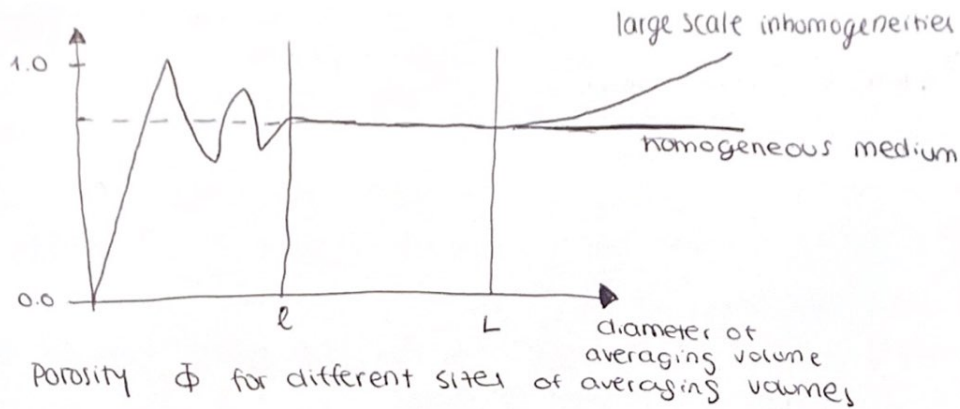 large scale inhomogeneities
1.0
homogeneous medium
0.0
l
L
diameter of
averaging volume
Porosity Φ for different sites of averaging volumes